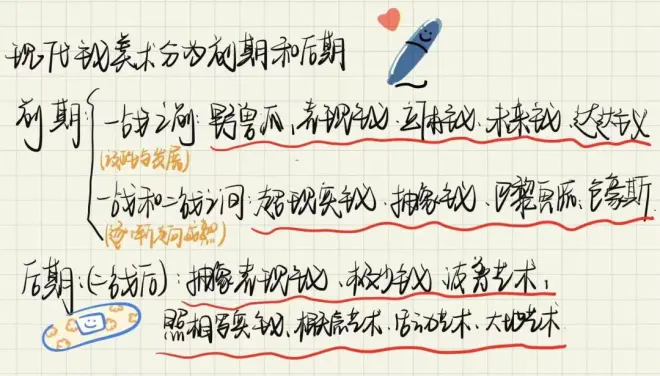 现代主义美术分为前期和后期
前期 一战之前：野兽派、表现主义、立体主义、未来主义、达达主义
(形成与发展)
一战和二战之间：超现实主义、抽象主义、巴黎画派、包豪斯
(逐渐走向成熟)
后期：(二战后)：抽象表现主义、极少主义、波普艺术，
照相写实主义、概念艺术、活动艺术、大地艺术